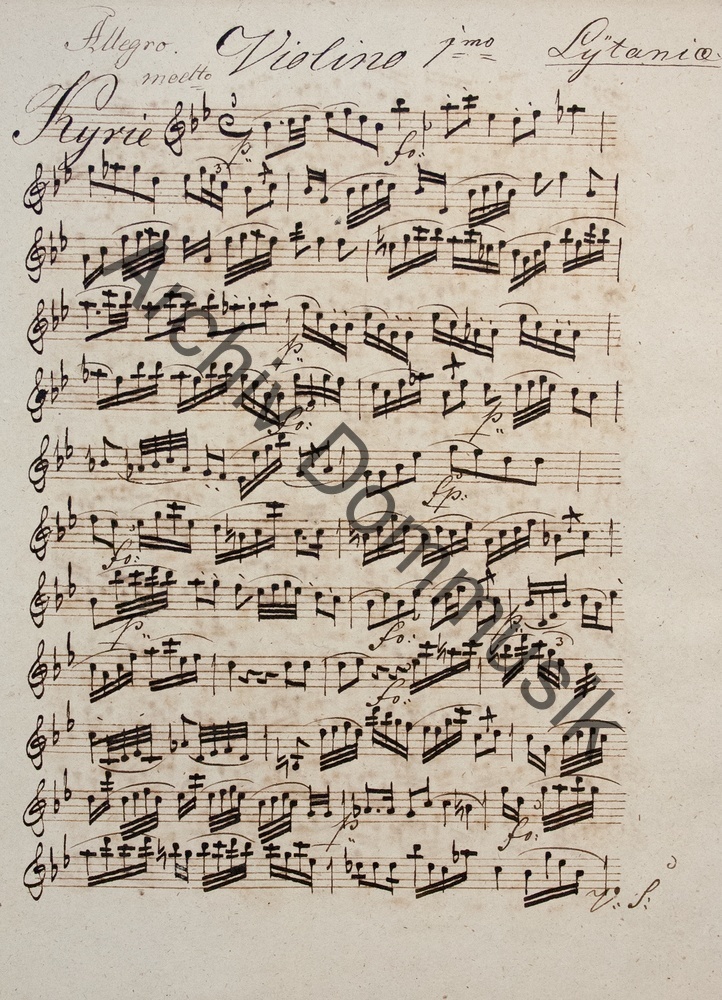 Allegro. Violino 1mo Lÿtaniæ
Kyrie
p: fo:
3
p:
fo: p:
fp:
fo:
p: fo: p:
fo: 3
p: fo:
V: S:
Archiv Dommusik